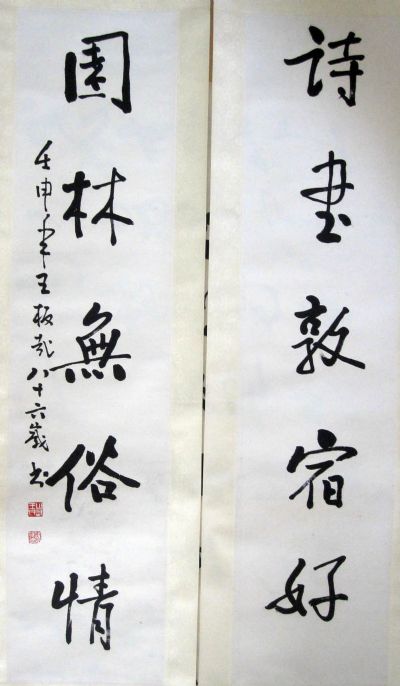 詩書敦宿好
園林無俗情
壬申年王板哉八十六歲書